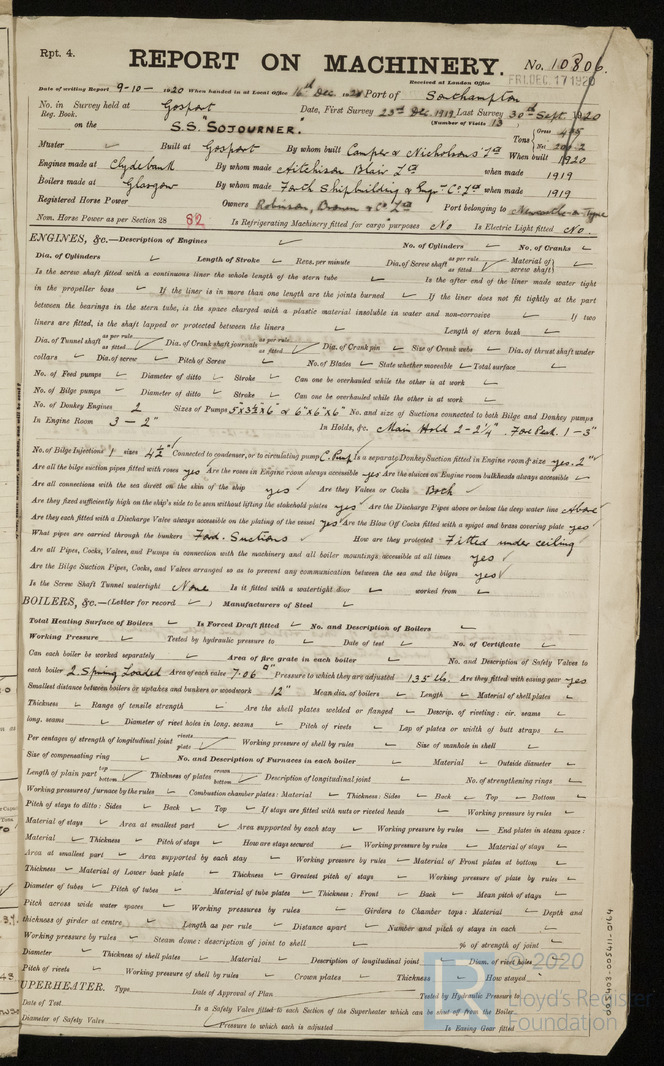 Rpt. 4.
REPORT ON MACHINERY.
No. 10806.
Received at London Office
FRI. DEC. 17 1920
Date of writing Report 9-10- 1920 When handed in at Local Office 16th Dec. 1920 Port of Southampton
No. in Survey held at Gosport Date, First Survey 23rd Dec. 1919 Last Survey 30th Sept. 1920
Reg. Book. (Number of Visits 13
on the S.S. "SOJOURNER." Tons Gross 495 Net
Master ✓ Built at Gosport By whom built Camper & Nicholsons Ld When built 1920
Engines made at Clydebank By whom made Aitchison Blair Ld when made 1919
Boilers made at Glasgow By whom made Forth Shipbuilding & Engr. Co Ld when made 1919
Registered Horse Power Owners Robinson, Brown & Co Ld Port belonging to Newcastle-o-Tyne
Nom. Horse Power as per Section 28 82 Is Refrigerating Machinery fitted for cargo purposes No Is Electric Light fitted No.
ENGINES, &c.—Description of Engines ✓ No. of Cylinders ✓ No. of Cranks ✓
Dia. of Cylinders ✓ Length of Stroke ✓ Revs. per minute Dia. of Screw shaft as per rule as fitted ✓ Material of screw shaft ✓
Is the screw shaft fitted with a continuous liner the whole length of the stern tube ✓ Is the after end of the liner made water tight
in the propeller boss ✓ If the liner is in more than one length are the joints burned ✓ If the liner does not fit tightly at the part
between the bearings in the stern tube, is the space charged with a plastic material insoluble in water and non-corrosive ✓ If two
liners are fitted, is the shaft lapped or protected between the liners ✓ Length of stern bush ✓
Dia. of Tunnel shaft as per rule as fitted ✓ Dia. of Crank shaft journals as per rule as fitted ✓ Dia. of Crank pin ✓ Size of Crank webs ✓ Dia. of thrust shaft under
collars ✓ Dia. of screw ✓ Pitch of Screw ✓ No. of Blades ✓ State whether moveable ✓ Total surface ✓
No. of Feed pumps ✓ Diameter of ditto ✓ Stroke ✓ Can one be overhauled while the other is at work ✓
No. of Bilge pumps ✓ Diameter of ditto ✓ Stroke ✓ Can one be overhauled while the other is at work ✓
No. of Donkey Engines 2 Sizes of Pumps 5"x3½"x6" & 6"x6"x6" No. and size of Suctions connected to both Bilge and Donkey pumps
In Engine Room 3 - 2" In Holds, &c. Main Hold 2 - 2¼" Fore Peak. 1 - 3"
No. of Bilge Injections 1 sizes 4½" Connected to condenser, or to circulating pump C. Pump Is a separate Donkey Suction fitted in Engine room & size yes. 2"
Are all the bilge suction pipes fitted with roses yes Are the roses in Engine room always accessible yes Are the sluices on Engine room bulkheads always accessible ✓
Are all connections with the sea direct on the skin of the ship yes Are they Valves or Cocks Both
Are they fixed sufficiently high on the ship's side to be seen without lifting the stokehold plates yes Are the Discharge Pipes above or below the deep water line Above
Are they each fitted with a Discharge Valve always accessible on the plating of the vessel yes Are the Blow Off Cocks fitted with a spigot and brass covering plate yes
What pipes are carried through the bunkers Ford. Suctions How are they protected Fitted under ceiling
Are all Pipes, Cocks, Valves, and Pumps in connection with the machinery and all boiler mountings accessible at all times yes
Are the Bilge Suction Pipes, Cocks, and Valves arranged so as to prevent any communication between the sea and the bilges yes
Is the Screw Shaft Tunnel watertight None Is it fitted with a watertight door ✓ worked from ✓
BOILERS, &c.—(Letter for record ✓ ) Manufacturers of Steel ✓
Total Heating Surface of Boilers ✓ Is Forced Draft fitted ✓ No. and Description of Boilers ✓
Working Pressure ✓ Tested by hydraulic pressure to ✓ Date of test ✓ No. of Certificate ✓
Can each boiler be worked separately ✓ Area of fire grate in each boiler ✓ No. and Description of Safety Valves to
each boiler 2. Spring Loaded Area of each valve 7.06 □" Pressure to which they are adjusted 135 lb. Are they fitted with easing gear yes
Smallest distance between boilers or uptakes and bunkers or woodwork 12" Mean dia. of boilers ✓ Length ✓ Material of shell plates ✓
Thickness ✓ Range of tensile strength ✓ Are the shell plates welded or flanged ✓ Descrip. of riveting: cir. seams ✓
long. seams ✓ Diameter of rivet holes in long. seams ✓ Pitch of rivets ✓ Lap of plates or width of butt straps ✓
Per centages of strength of longitudinal joint rivets plate ✓ Working pressure of shell by rules ✓ Size of manhole in shell ✓
Size of compensating ring ✓ No. and Description of Furnaces in each boiler ✓ Material ✓ Outside diameter ✓
Length of plain part top bottom ✓ Thickness of plates crown bottom ✓ Description of longitudinal joint ✓ No. of strengthening rings ✓
Working pressure of furnace by the rules ✓ Combustion chamber plates: Material ✓ Thickness: Sides ✓ Back ✓ Top ✓ Bottom ✓
Pitch of stays to ditto: Sides ✓ Back ✓ Top ✓ If stays are fitted with nuts or riveted heads ✓ Working pressure by rules ✓
Material of stays ✓ Area at smallest part ✓ Area supported by each stay ✓ Working pressure by rules ✓ End plates in steam space:
Material ✓ Thickness ✓ Pitch of stays ✓ How are stays secured ✓ Working pressure by rules ✓ Material of stays ✓
Area at smallest part ✓ Area supported by each stay ✓ Working pressure by rules ✓ Material of Front plates at bottom ✓
Thickness ✓ Material of Lower back plate ✓ Thickness ✓ Greatest pitch of stays ✓ Working pressure of plate by rules ✓
Diameter of tubes ✓ Pitch of tubes ✓ Material of tube plates ✓ Thickness: Front ✓ Back ✓ Mean pitch of stays ✓
Pitch across wide water spaces ✓ Working pressures by rules ✓ Girders to Chamber tops: Material ✓ Depth and
thickness of girder at centre ✓ Length as per rule ✓ Distance apart ✓ Number and pitch of stays in each ✓
Working pressure by rules ✓ Steam dome: description of joint to shell ✓ % of strength of joint ✓
Diameter ✓ Thickness of shell plates ✓ Material ✓ Description of longitudinal joint ✓ Diam. of rivet holes ✓
Pitch of rivets ✓ Working pressure of shell by rules ✓ Crown plates ✓ Thickness ✓ How stayed ✓
UPERHEATER. Type Date of Approval of Plan Tested by Hydraulic Pressure to
Date of Test Is a Safety Valve fitted to each Section of the Superheater which can be shut off from the Boiler
Diameter of Safety Valve Pressure to which each is adjusted Is Easing Gear fitted
© 2020
Lloyd's Register
Foundation
005403-005411-0164